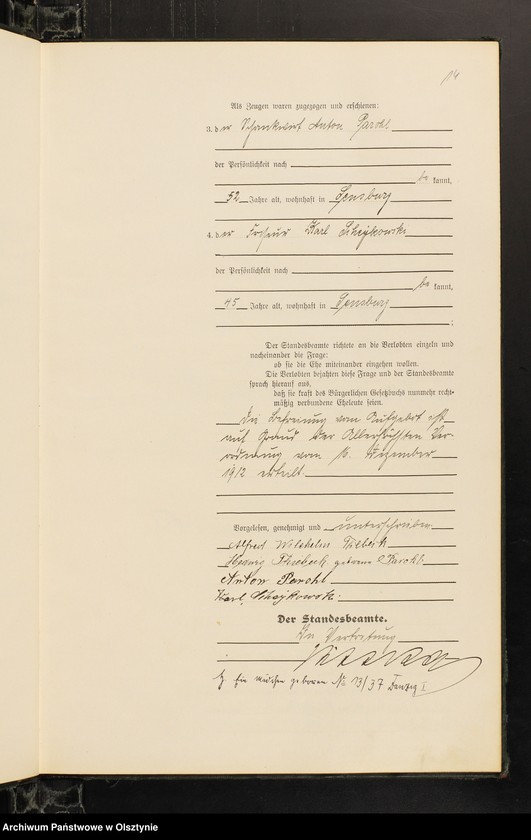 14
Als Zeugen waren zugezogen und erschienen:
3. der Schankwirt Anton Parohl
der Persönlichkeit nach
be kannt,
52 Jahre alt, wohnhaft in Sensburg
4. der Friseur Karl
der Persönlichkeit nach
be kannt,
45 Jahre alt, wohnhaft in Sensburg
;
Der Standesbeamte richtete an die Verlobten einzeln und
nacheinander die Frage:
ob sie die Ehe miteinander eingehen wollen.
Die Verlobten bejahten diese Frage und der Standesbeamte
sprach hierauf aus,
daß sie kraft des Bürgerlichen Gesetzbuchs nunmehr recht-
mäßig verbundene Eheleute seien.
Die Befreiung vom Aufgebot ist
auf Grund der Allerhöchsten Ver-
ordnung vom 16. Dezember
1912 erteilt.
Vorgelesen, genehmigt und unterschrieben
Alfred Wilhelm
geborene Parohl
Anton Parohl
Karl
Der Standesbeamte.
In Vertretung
Ein Mädchen geboren No 13/37 Danzig I